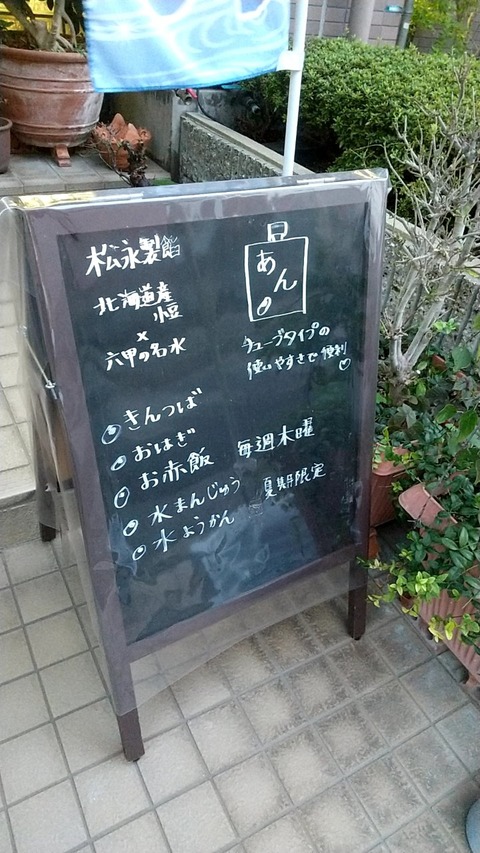 松永製餡
北海道産
小豆
×
六甲の名水
あん
チューブタイプの
使いやすさで便利♡
きんつば
おはぎ
お赤飯 毎週木曜
水まんじゅう 夏期限定
水ようかん